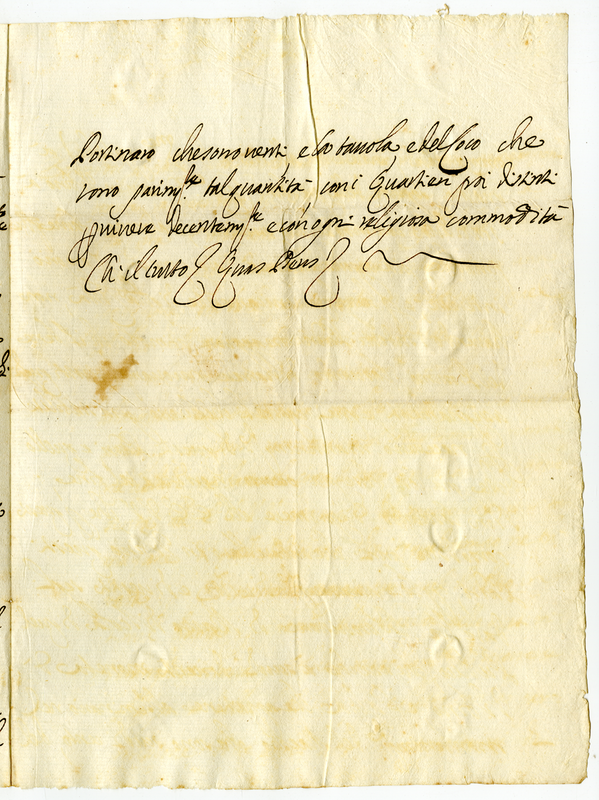 Portinaro che sono venti e la tauola e del Coco che
sono parim.te tal quantità con i Quartieri poi distinti
p viuere decentem.te e con ogni religiosa commodità
è il tutto Quas Deus